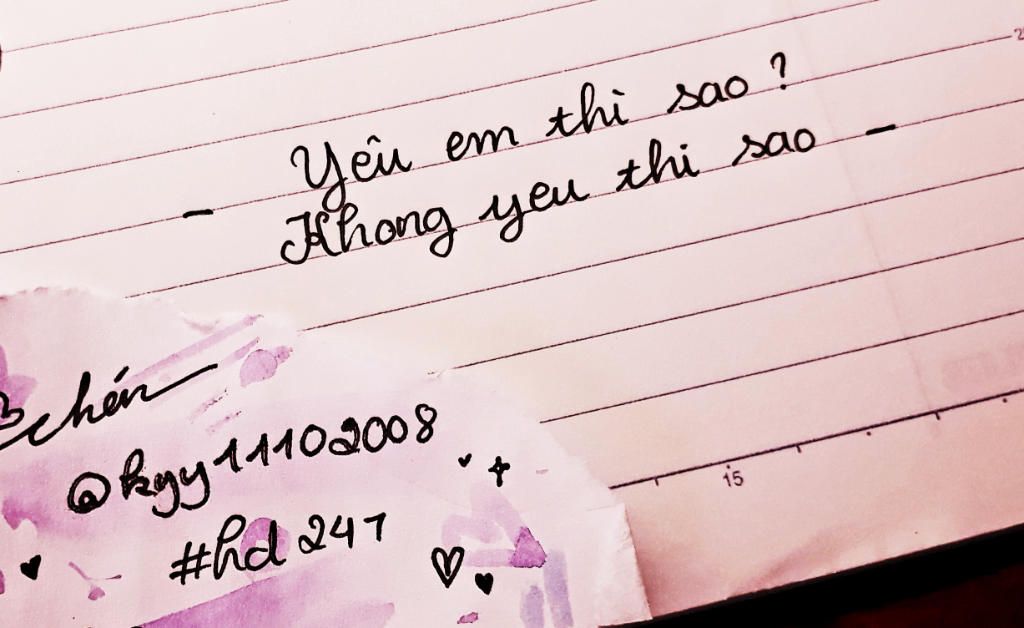 Yêu em thì sao?
- Khong yeu thi sao -
chén
@kgy11102008
#hd 247
15